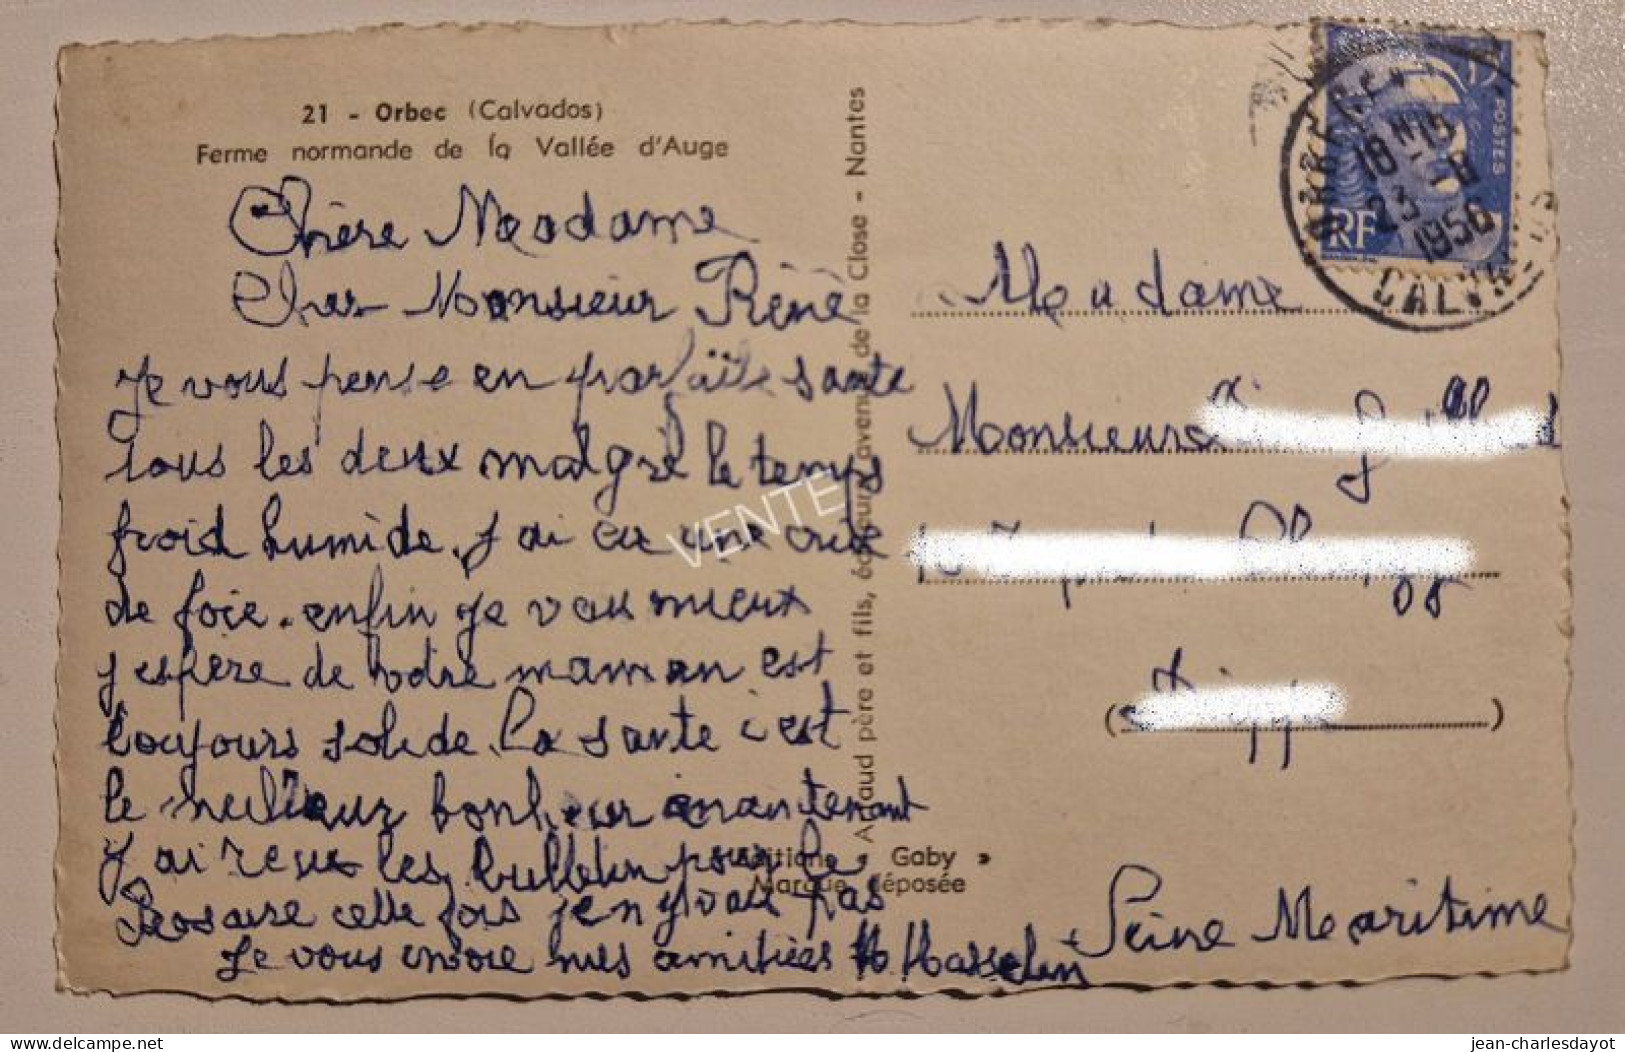 21 - Orbec (Calvados)
Ferme normande de la Vallée d'Auge
Chère Madame
Cher Monsieur Réné
Je vous pense en parfaite sante
tous les deux malgré le temps
froid humide. j ai eu une crise
de foie. enfin je vais mieux
j espère de votre maman est
toujours solide. la sante c est
le meilleur bonheur maintenant
j ai recu les bulletin pour le
Rosaire cette fois je n y vais pas
Je vous envoie mes amitiées
Artaud père et fils, éditeurs, avenue de la Close - Nantes
Editions « Gaby »
Marque déposée
VENTE
15
POSTES
RF
ORBEC
18 H 15
23
1956
CALVADOS
Madame
Monsieur
( )
Seine Maritime
jean-charlesdayot